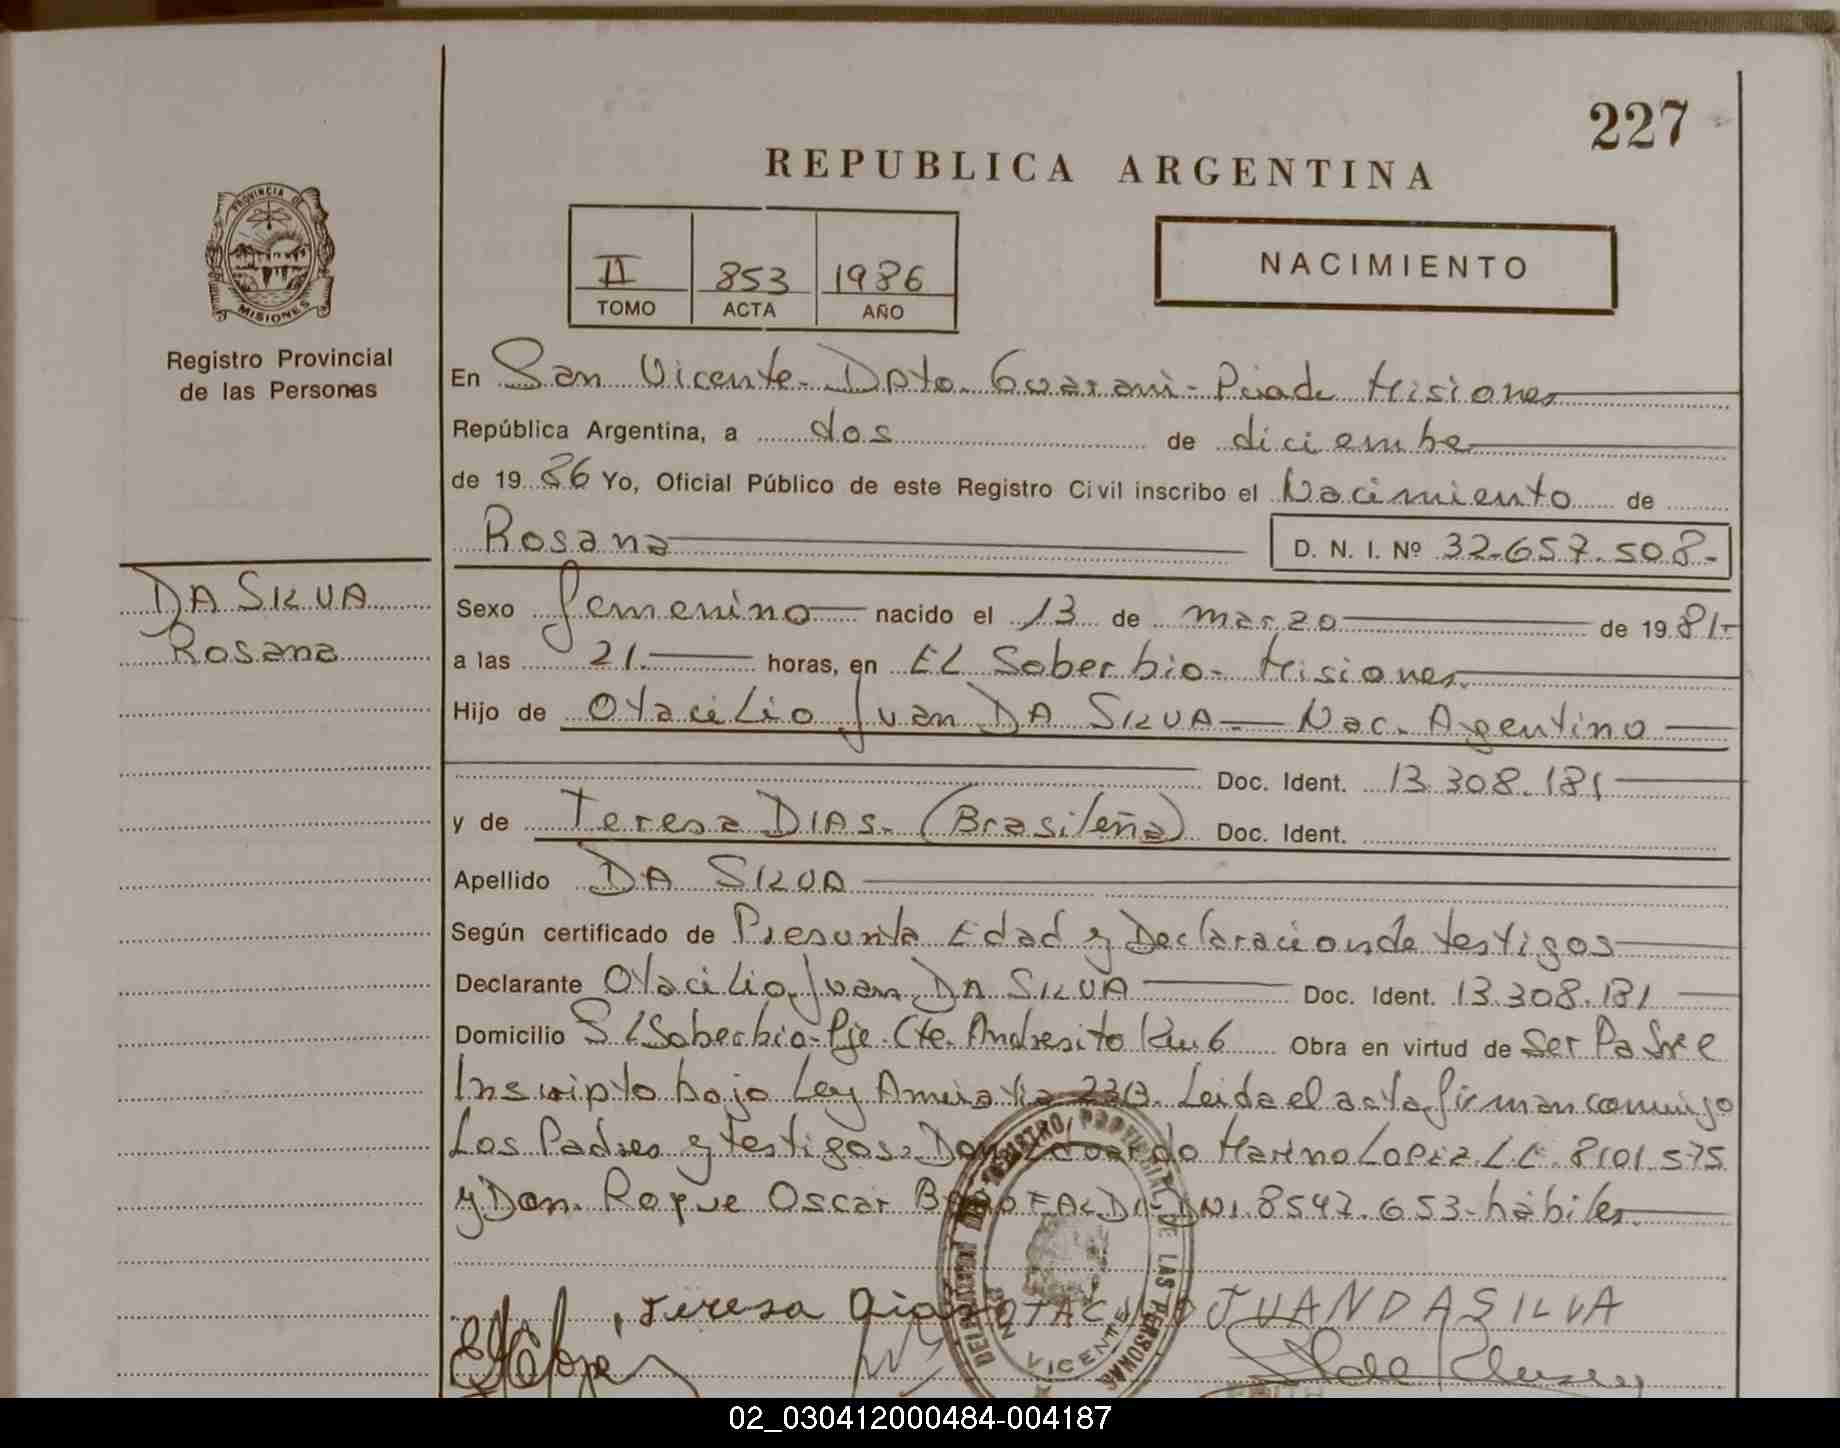 227
REPUBLICA ARGENTINA
PROVINCIA DE
MISIONES
Registro Provincial
de las Personas
II 853 1986
TOMO ACTA AÑO
NACIMIENTO
En San Vicente - Dpto. Guaraní - Pciade Misiones
República Argentina, a dos de diciembe
de 19 86 Yo, Oficial Público de este Registro Civil inscribo el Nacimiento de
Rosana D. N. I. Nº 32.657.508.-
DA SILVA
Rosana
Sexo femenino nacido el 13 de marzo de 19 81.-
a las 21.- horas, en EL Soberbio - Misiones.
Hijo de Otacilio Juan DA SILVA.- Nac. Argentino
Doc. Ident. 13.308.181
y de Teresa DIAS. (Brasileña) Doc. Ident.
Apellido DA SILVA
Según certificado de Presunta Edad y Declaracionde testigos
Declarante Otacilio Juan DA SILVA Doc. Ident. 13.308.181
Domicilio Soberbio - Pje. Cte. Andresito Km 6 Obra en virtud de Ser Padre
Inscripto bajo Ley Amistia Leida el acta, firman conmigo
Los Padres y testigos: Don Eduardo Marino Lopez L.E. 8101575
y Don. Roque Oscar DNI 8547.653 - hábiles.
Teresa Dias OTACILIO JUAN DA SILVA
REGISTRO PROVINCIAL DE LAS PERSONAS
VICENTE
02_030412000484-004187